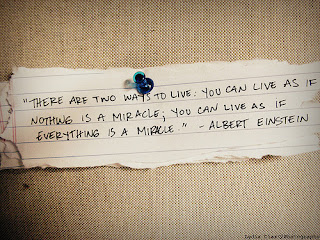 "THERE ARE TWO WAYS TO LIVE: YOU CAN LIVE AS IF
NOTHING IS A MIRACLE; YOU CAN LIVE AS IF
EVERYTHING IS A MIRACLE." - ALBERT EINSTEIN